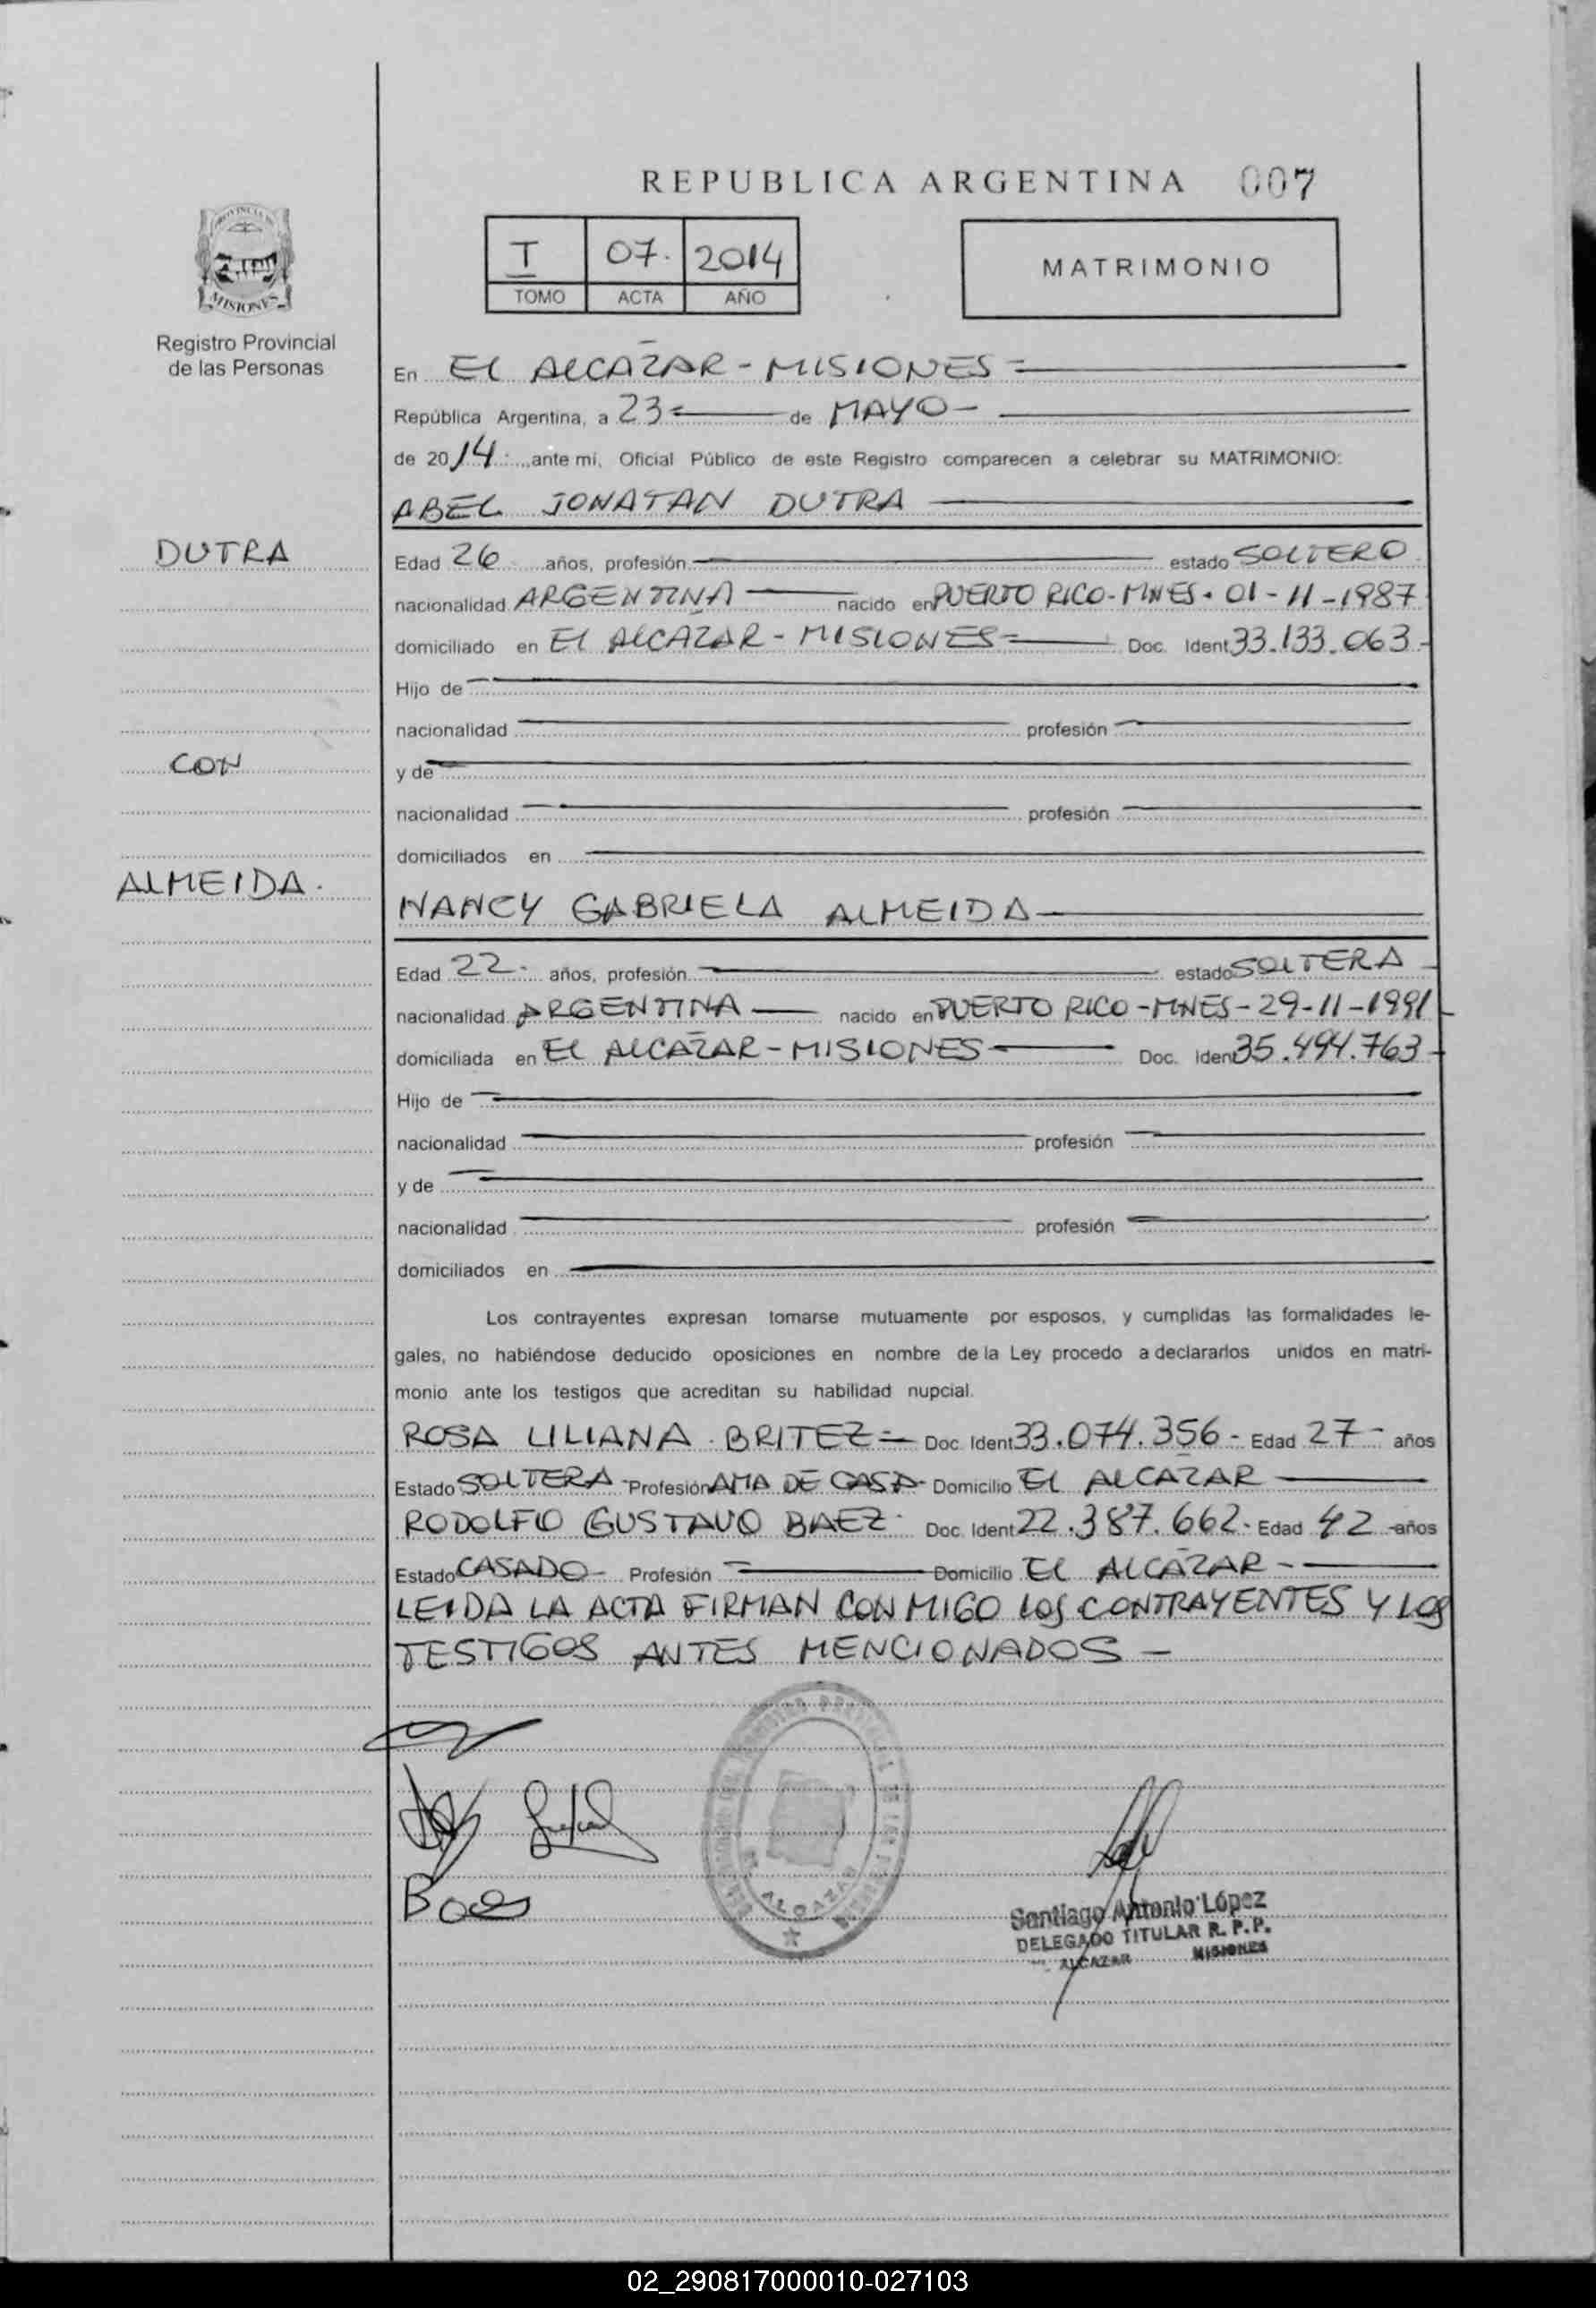 REPUBLICA ARGENTINA 007
T 07. 2014
TOMO ACTA AÑO
MATRIMONIO
MISIONES
Registro Provincial
de las Personas
En EL ALCAZAR - MISIONES =
República Argentina, a 23 = de MAYO -
de 2014 ante mi, Oficial Público de este Registro comparecen a celebrar su MATRIMONIO:
ABEL JONATAN DUTRA
DUTRA
Edad 26 años, profesión estado SOLTERO
nacionalidad ARGENTINA nacido en PUERTO RICO - MNES - 01 - 11 - 1987
domiciliado en EL ALCAZAR - MISIONES = Doc. Ident 33.133.063 -
Hijo de
nacionalidad profesión
CON
y de
nacionalidad profesión
domiciliados en
ALMEIDA.
NANCY GABRIELA ALMEIDA
Edad 22 - años, profesión estado SOLTERA
nacionalidad ARGENTINA nacido en PUERTO RICO - MNES - 29 - 11 - 1991
domiciliada en EL ALCAZAR - MISIONES Doc. Ident 35.494.763 -
Hijo de
nacionalidad profesión
y de
nacionalidad profesión
domiciliados en
Los contrayentes expresan tomarse mutuamente por esposos, y cumplidas las formalidades le-
gales, no habiéndose deducido oposiciones en nombre de la Ley procedo a declararlos unidos en matri-
monio ante los testigos que acreditan su habilidad nupcial.
ROSA LILIANA BRITEZ = Doc. Ident 33.074.356 - Edad 27 - años
Estado SOLTERA - Profesión AMA DE CASA - Domicilio EL ALCAZAR
RODOLFO GUSTAVO BAEZ - Doc. Ident 22.387.662 - Edad 42 - años
Estado CASADO - Profesión = Domicilio EL ALCAZAR -
LEIDA LA ACTA FIRMAN CONMIGO LOS CONTRAYENTES Y LOS
TESTIGOS ANTES MENCIONADOS -
ALCAZAR
Santiago Antonio López
DELEGADO TITULAR R. P. P.
ALCAZAR MISIONES
02_290817000010-027103